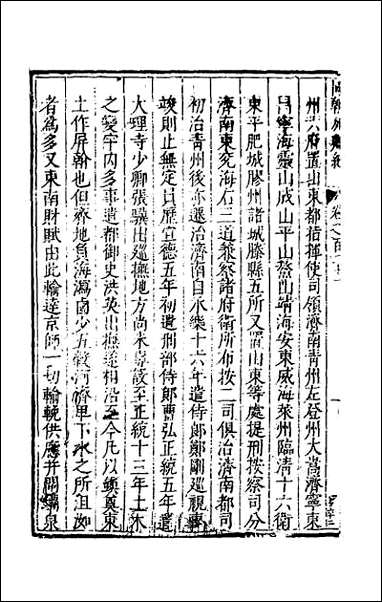 州六府置山東都指揮使司領濟南青州左登州大嵩濟寧東
昌寧海靈山成山平山鰲山靖海安東威海萊州臨清十六衛
東平肥城膠州諸城滕縣五所又置山東等處提刑按察司分
濟南東兗海右三道兼察諸府衛所布按二司俱治濟南都司
初治青州後亦遷治濟南自永樂十六年遣侍郎鄭剛廵視事
竣則止無定員歷宣德五年初遣刑部侍郎曹弘正統五年遣
大理寺少卿張驥出廵撫地方尚未專敕至正統十三年土木
之變宇内多事遣都御史洪英出撫遂相沿至今凡以鎮奠東
土作屏翰也但齊地負海瀉鹵少五穀河濟里下水之所沮如
者為多又東南財賦由此輸達京師一切輪輓供應并開濬泉